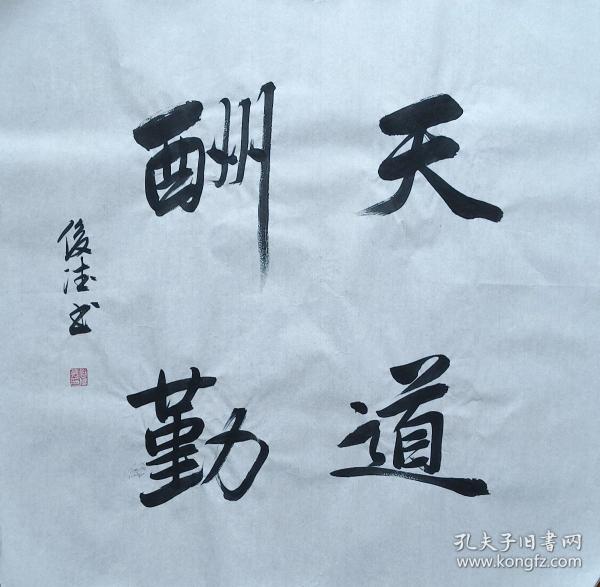 天道
酬勤
俊德书
孔夫子旧书网
www.kongfz.com